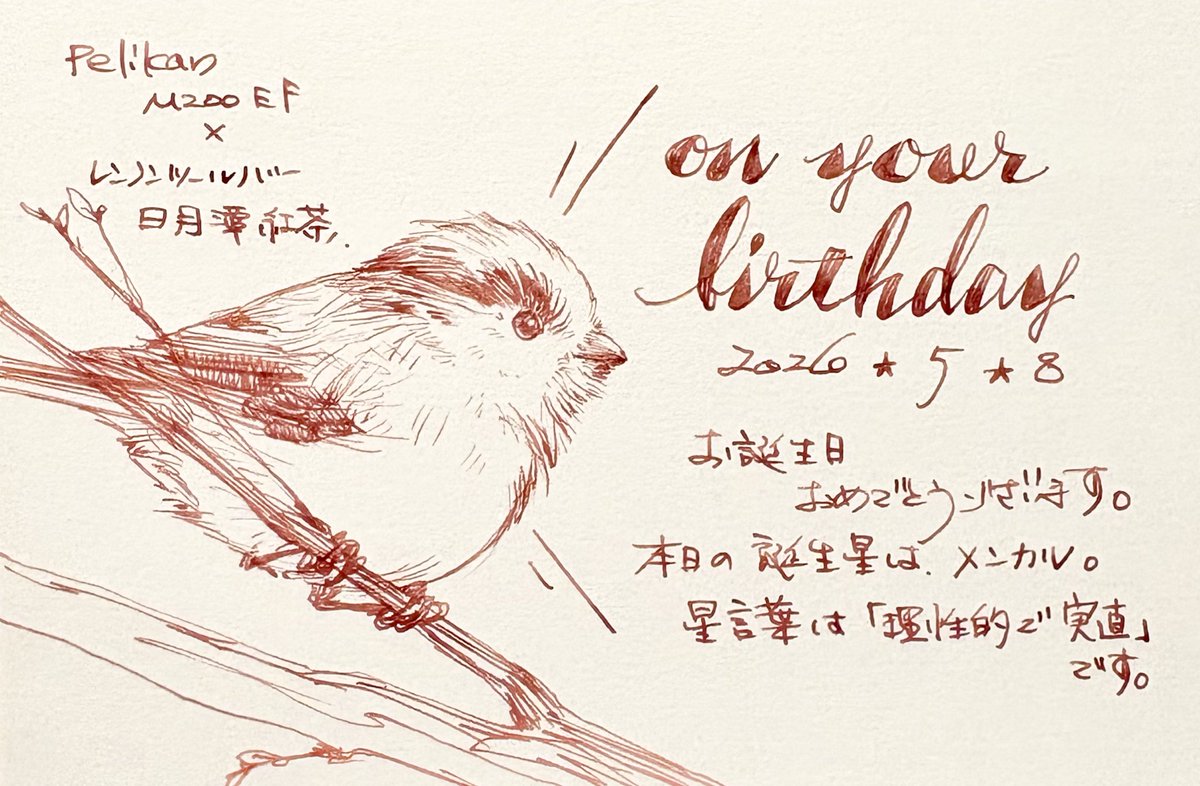 Pelikan
M200 EF
×
レンノンツールバー
日月潭紅茶.
on your
birthday
2026★5★8
お誕生日
おめでとうございます。
本日の誕生星は、メンカル。
星言葉は「理性的で実直」
です。